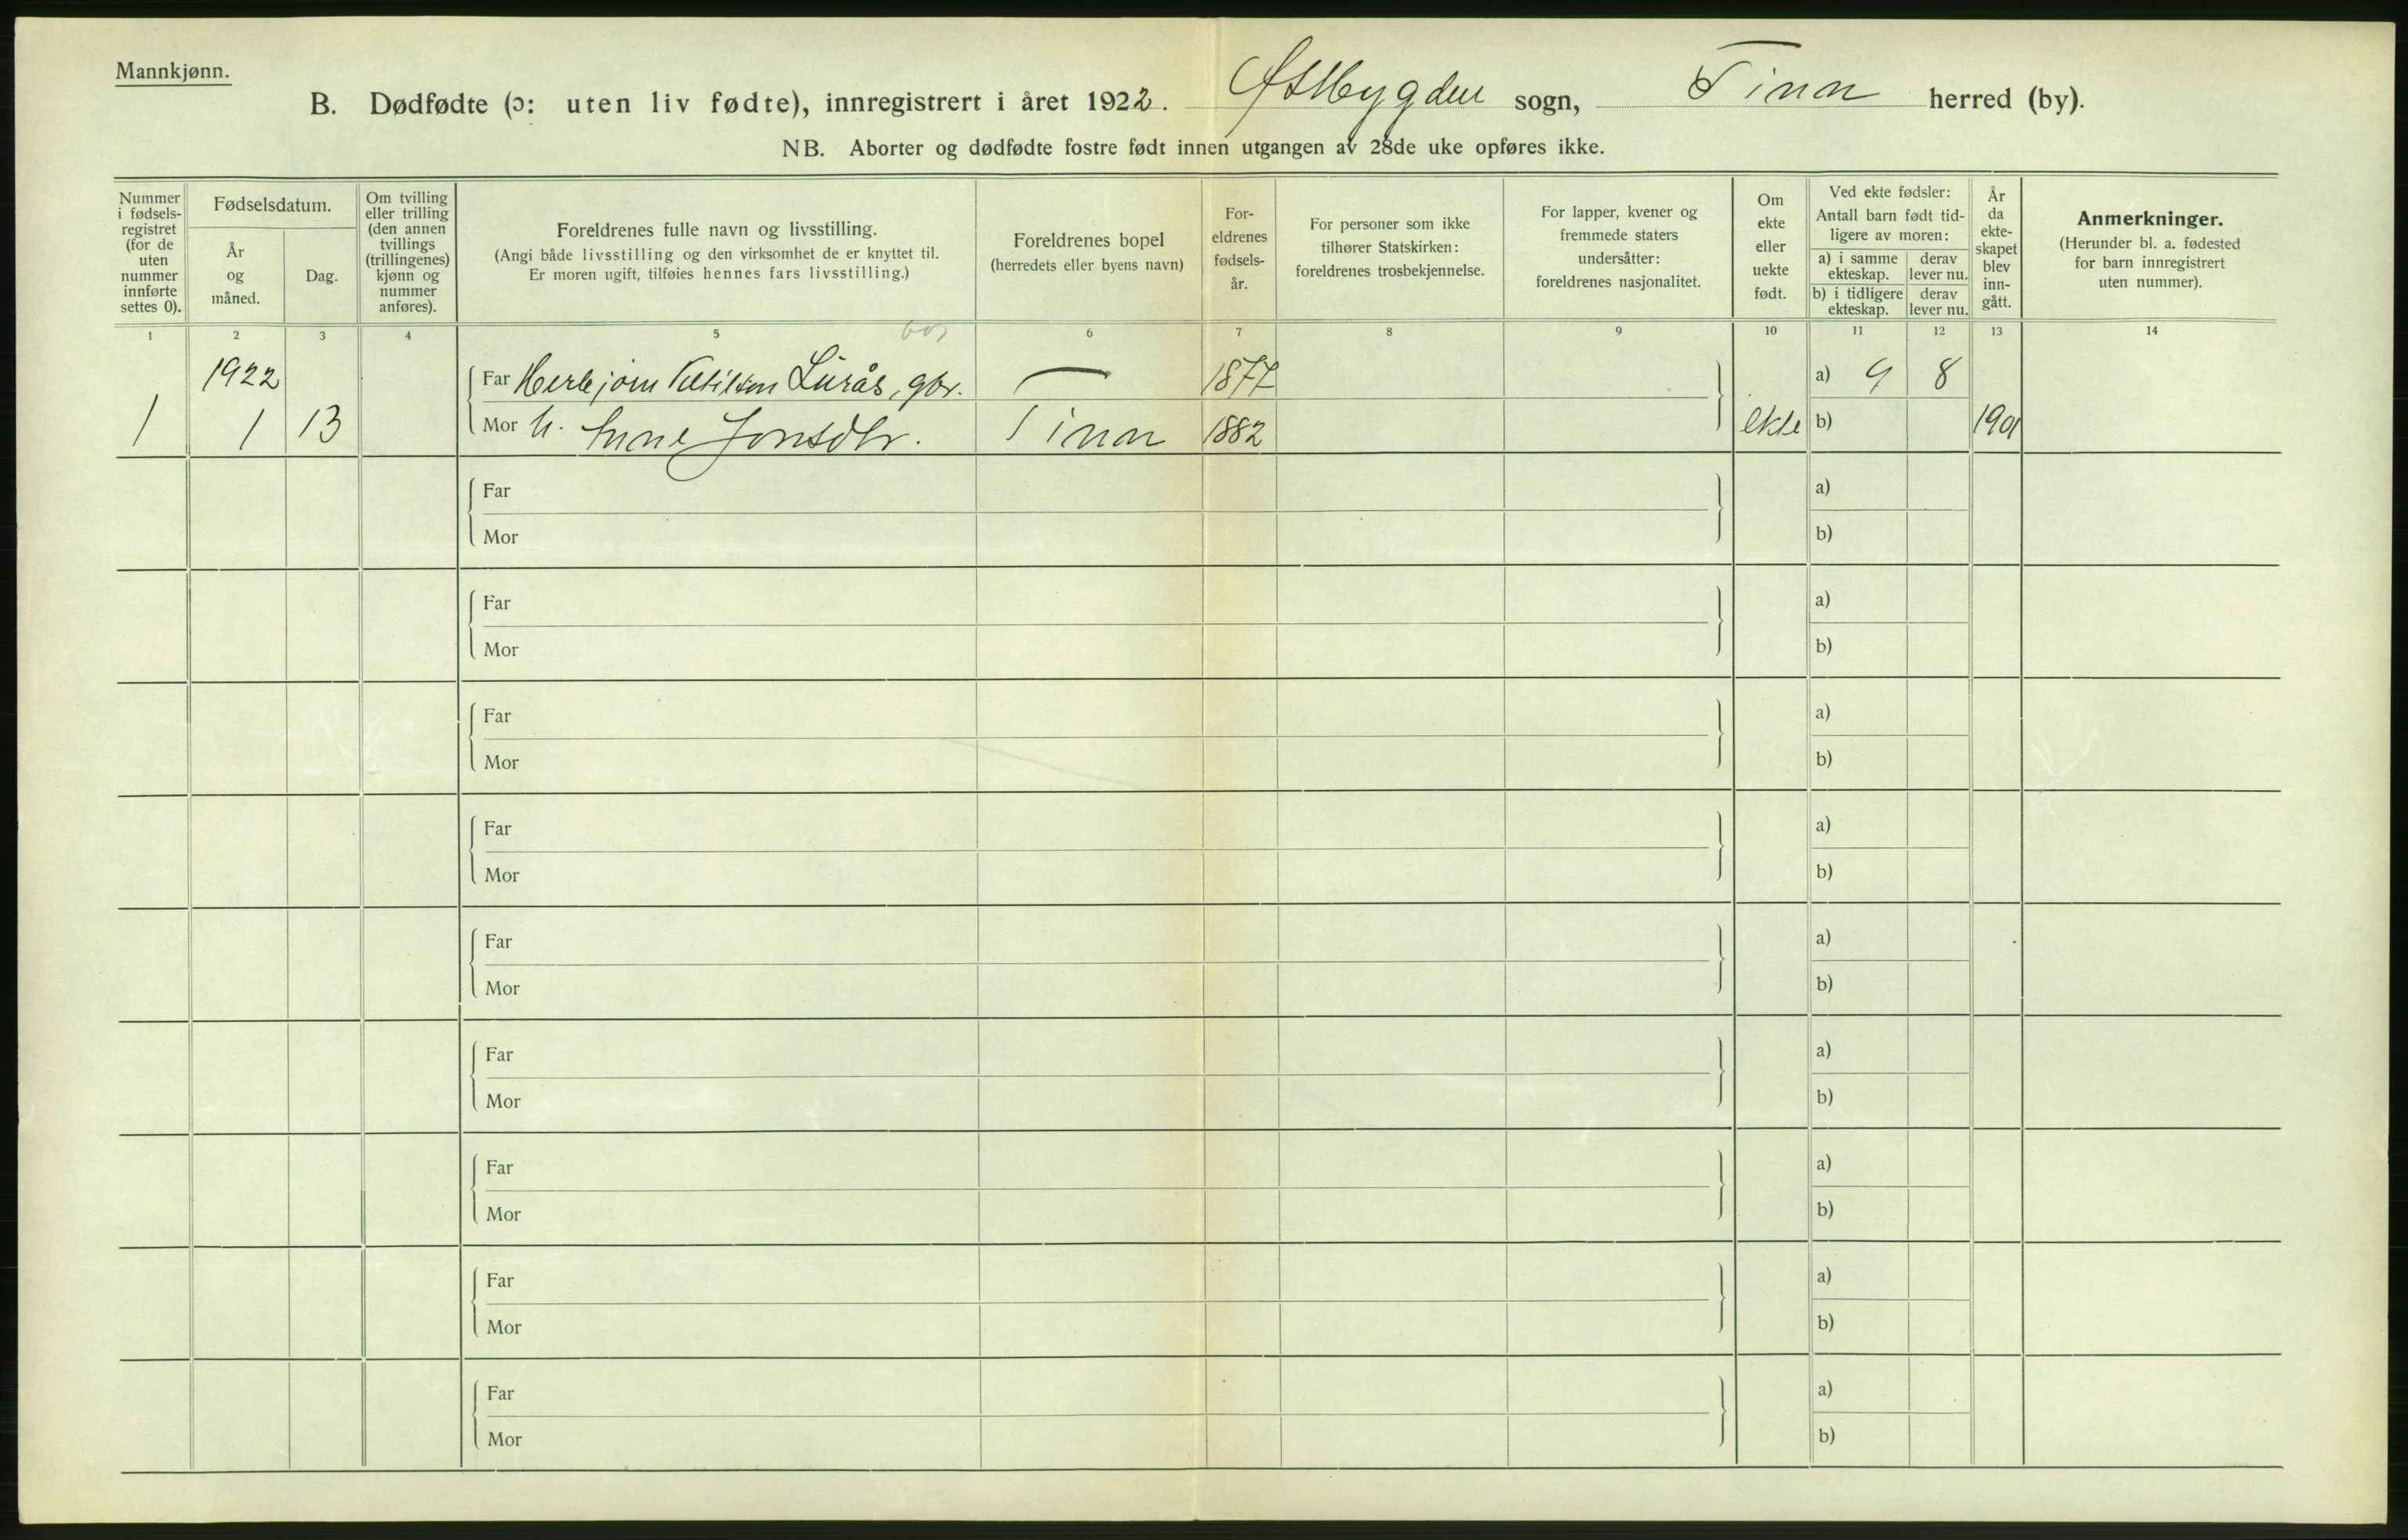 Mannkjønn.
B. Dødfødte (ɔ: uten liv fødte), innregistrert i året 1922. Østbygden sogn, Tinn herred (by).
NB. Aborter og dødfødte fostre født innen utgangen av 28de uke opføres ikke.
Nummer i fødsels- registret (for de uten nummer innførte settes 0).
Fødselsdatum.
År og måned.
Dag.
Om tvilling eller trilling (den annen tvillings (trillingenes) kjønn og nummer anføres).
Foreldrenes fulle navn og livsstilling.
(Angi både livsstilling og den virksomhet de er knyttet til.
Er moren ugift, tilføies hennes fars livsstilling.)
Foreldrenes bopel
(herredets eller byens navn)
For- eldrenes fødsels- år.
For personer som ikke tilhører Statskirken: foreldrenes trosbekjennelse.
For lapper, kvener og fremmede staters undersåtter: foreldrenes nasjonalitet.
Om ekte eller uekte født.
Ved ekte fødsler:
Antall barn født tid- ligere av moren:
a) i samme ekteskap.
derav lever nu.
b) i tidligere ekteskap.
derav lever nu.
År da ekte- skapet blev inn- gått.
Anmerkninger.
(Herunder bl. a. fødested for barn innregistrert uten nummer).
1 2 3 4 5 6 7 8 9 10 11 12 13 14
1922 Far Herbjørn Ketilsen Lurås, gbr. 1877 a) 9 8
1 1 13 Mor h. Anne Jonsdtr. Tinn 1882 ekte b) 1901
Far a)
Mor b)
Far a)
Mor b)
Far a)
Mor b)
Far a)
Mor b)
Far a)
Mor b)
Far a)
Mor b)
Far a)
Mor b)
Far a)
Mor b)
Far a)
Mor b)